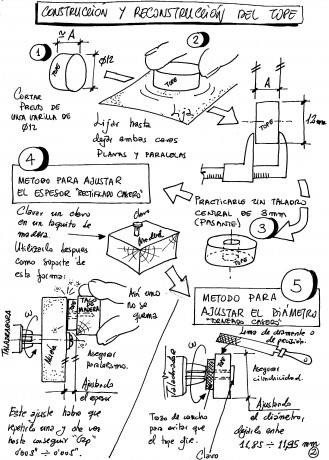 CONSTRUCCIÓN Y RECONSTRUCCIÓN DEL TOPE
1
≃ A
TOPE
Ø12
CORTAR
PREVIO DE
UNA VARILLA DE
Ø12
2
TOPE
Lija
Lijar hasta
dejar ambas caras
PLANAS Y PARALELAS
A
TOPE
12mm
PRACTICARLE UN TALADRO
CENTRAL DE 3mm
(PASANTE)
3
TOPE
4
METODO PARA AJUSTAR
EL ESPESOR "RECTIFICADO CASERO"
Clavar un clavo
en un taquito de
madera.
Utilizarlo despues
como soporte de
esta forma:
clavo
Madera
TALADRADORA
ω
TOPE
TACO DE
MADERA
Así uno
no se
quema
Asegurar
paralelismo.
Ajustando
el espesor
Este ajuste habra que
repetirlo una y de ver
hasta conseguir "Gap"
0'003" ÷ 0'005".
5
METODO PARA
AJUSTAR EL DIÁMETRO
"TORNEADO CASERO"
Lima de diamante o
de precisión.
Taladradora
ω
TOPE
Asegurar
cilindricidad.
Ajustando
el diámetro,
dejarlo entre
11,85 ÷ 11,95 mm
Trozo de caucho
para evitar que
el tope gire.
Clavo
2